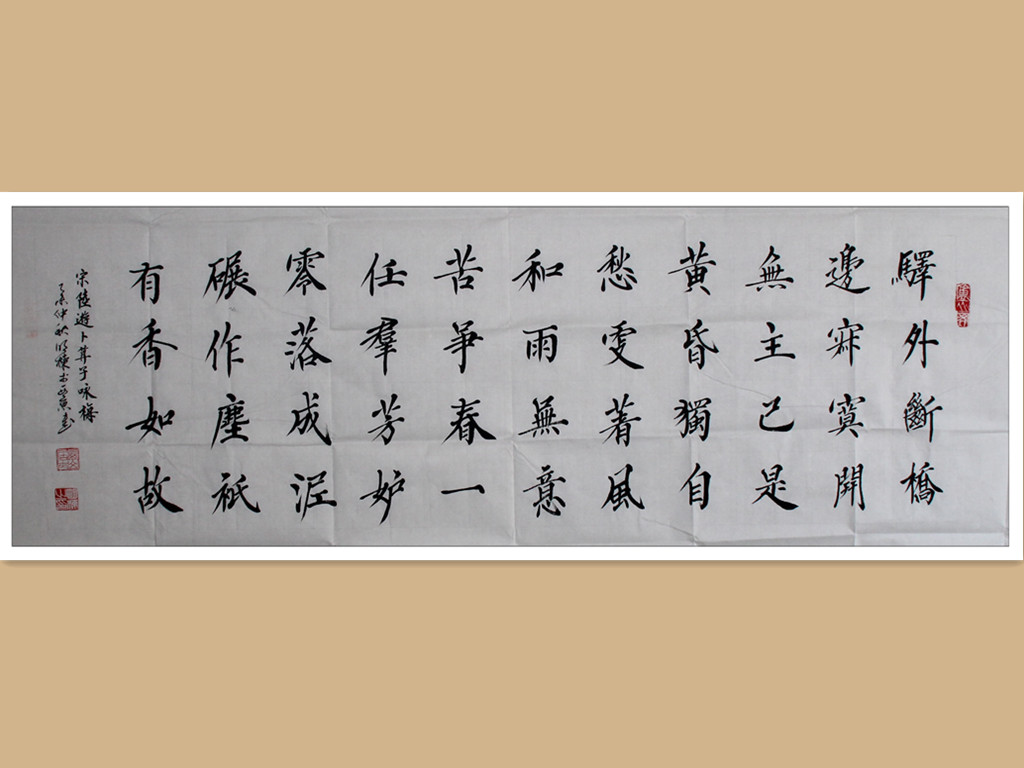 驛外斷橋
邊寂寞開
無主已是
黃昏獨自
愁更着風
和雨無意
苦爭春一
任羣芳妒
零落成泥
碾作塵衹
有香如故
宋陸遊卜算子咏梅
乙未仲秋書